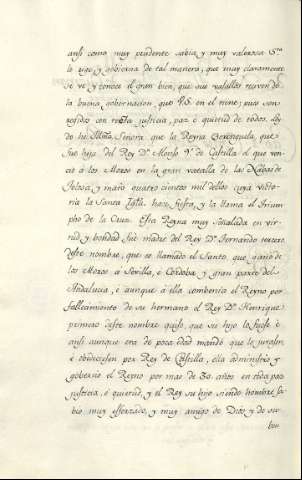 ansi como muy prudente sabia, y muy valerosa S.ra
lo rige y gobierna de tal manera, que muy claramente
se ve y conoce el gran bien, que sus vasallos reciven de
la buena gobernacion que V.S. en el tiene, pues son
regidos con recta justicia, paz è quietud de todos. Ley
do hè Illma. Señora, que la Reyna Berenguela, que
fue hija del Rey D.n Alonso 9.º de Castilla el que ven
ciò à los Moros en la gran vatalla de las Navas de
Tolosa y matò quatro cientos mil dellos cuya victo
ria la Santa Igla. hace fiesta, y la llama el trium
pho de la Cruz. Esta Reyna muy señalada en vir
tud y bondad fuè madre del Rey D.n Fernando tercero
deste nombre, que es llamado el Santo, que ganò de
los Moros à Sevilla, è Cordoba y gran parte del
Andalucia, è aunque à ella combenia el Reyno por
fallecimiento de su hermano el Rey D.n Henrique
primero deste nombre quiso, que su hijo lo fuese è
ansi aunque era de poca edad mandò que le jurasen,
è obedeciesen por Rey de Castilla, ella administrò y
gobernò el Reyno por mas de 30. años en toda paz
justicia, è quietud, y el Rey su hijo siendo hombre sa
bio, muy esforzado, y muy amigo de Dios y de su